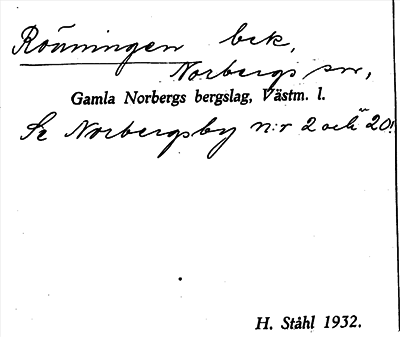 Rönningen bek,
Norbergs sn,
Gamla Norbergs bergslag, Västm. l.
Se Norbergsby n:r 2 och 20!
H. Ståhl 1932.